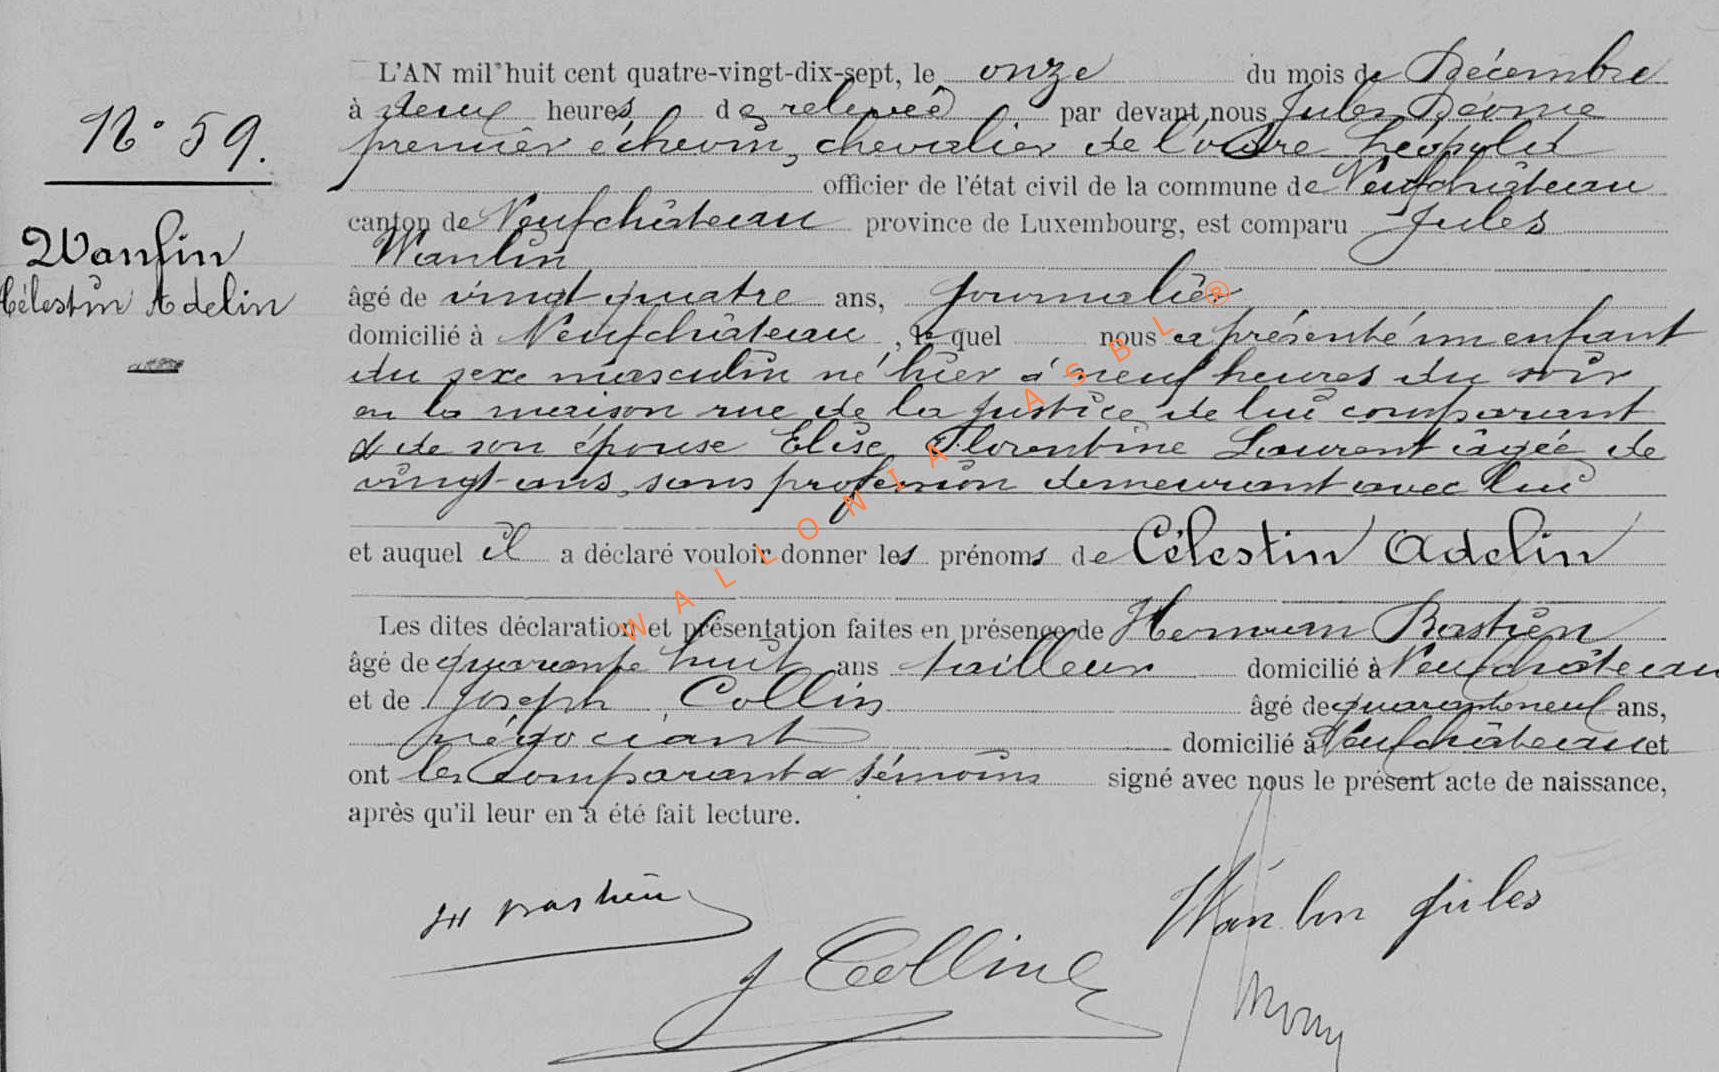 N° 59.
Wanlin
Célestin Adelin
L'AN mil huit cent quatre-vingt-dix-sept, le onze du mois de Décembre
à deux heures de relevée par devant nous Jules
premier échevin, chevalier de l'ordre Léopold
officier de l'état civil de la commune de Neufchâteau
canton de Neufchâteau province de Luxembourg, est comparu Jules
Wanlin
âgé de vingt quatre ans, journalier
domicilié à Neufchâteau, le quel nous a présenté un enfant
du sexe masculin né hier à neuf heures du soir
en la maison rue de la Justice de lui comparant
& de son épouse Elise Florentine Laurent âgée de
vingt ans, sans profession demeurant avec lui
et auquel il a déclaré vouloir donner les prénoms de Célestin Adelin
Les dites déclaration et présentation faites en présence de Herman Bastien
âgé de quarante huit ans tailleur domicilié à Neufchâteau
et de Joseph Collin âgé de quarante neuf ans,
négociant domicilié à Neufchâteau et
ont les comparant & témoins signé avec nous le présent acte de naissance,
après qu'il leur en a été fait lecture.
H Bastien
Wanlin Jules
J Collin
WALLONIA ASBL ®